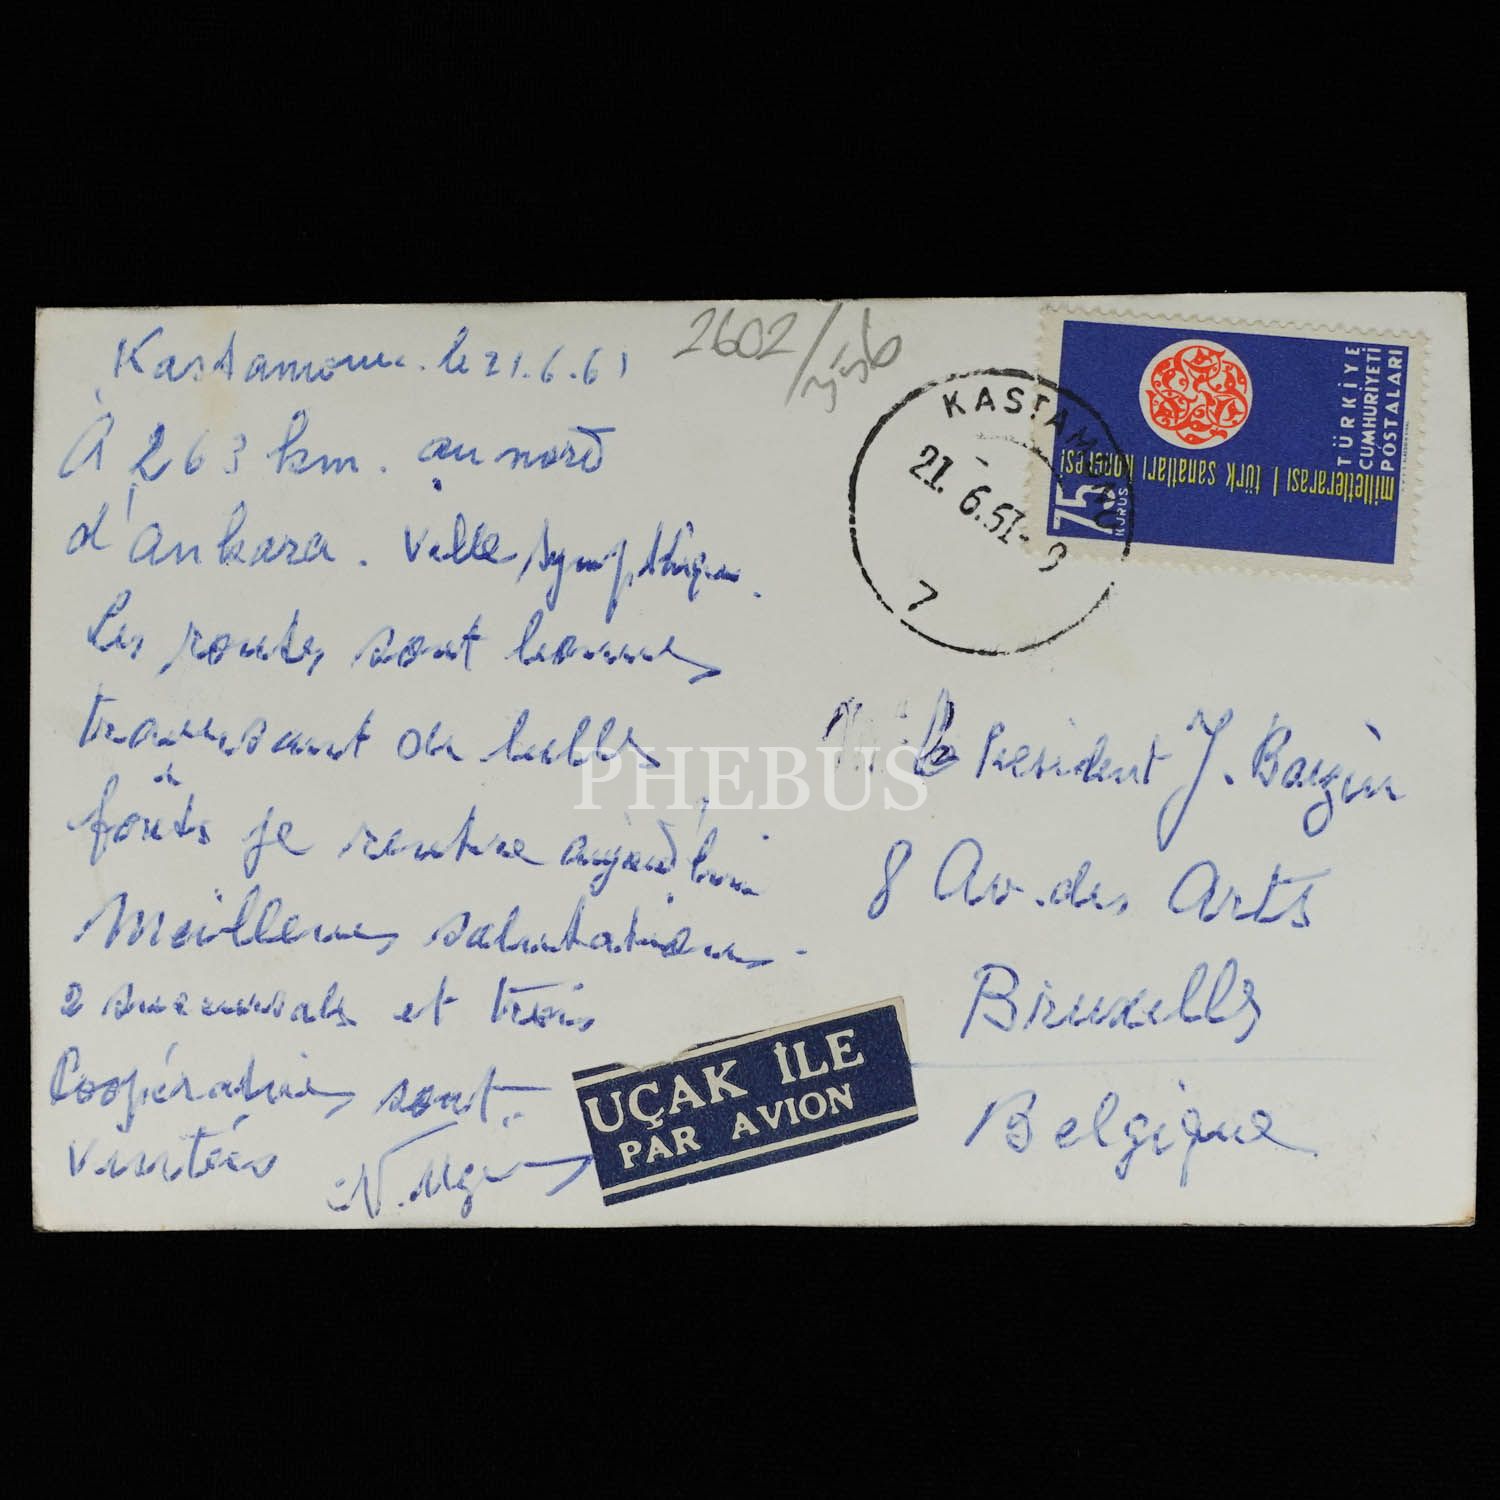 Kastamonu. le 21.6.61
À 263 km. au nord
d'ankara. Ville sympthique.
Les routes sont bonnes
traversant de belles
forêts je rentre aujourd'hui
Meilleures salutations.
2 succursals et trois
Coopératives sont
visitées
2602/
KASTAMONU
21.6.61-9
7
TÜRKİYE
CUMHURİYETİ
POSTALARI
milletlerarası I türk sanatları kongresi
75
KURUS
M. le President J. Bazin
8 Av. des Arts
Bruxelles
Belgique
UÇAK İLE
PAR AVION
PHEBUS